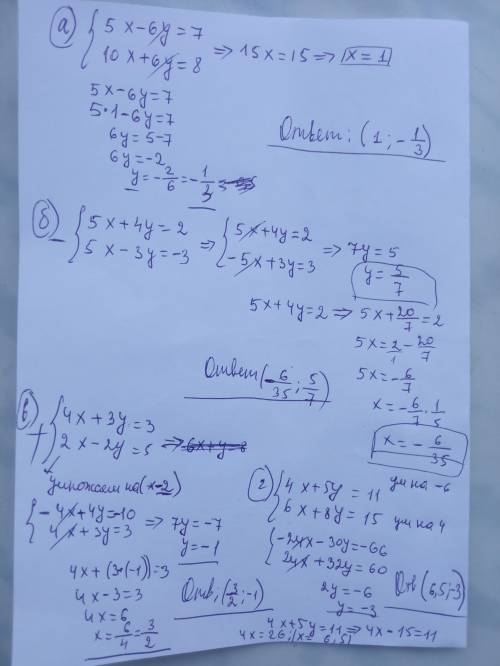 а) { 5x - 6y = 7
10x + 6y = 8 ⇒ 15x = 15 ⇒ x = 1
5x - 6y = 7
5·1 - 6y = 7
6y = 5 - 7
6y = -2
y = -2/6 = -1/3
Ответ: (1; -1/3)
б) - { 5x + 4y = 2
5x - 3y = -3 ⇒ { 5x + 4y = 2
-5x + 3y = 3 ⇒ 7y = 5
y = 5/7
5x + 4y = 2 ⇒ 5x + 20/7 = 2
5x = 2/1 - 20/7
5x = -6/7
x = -6/7 · 1/5
x = -6/35
Ответ (-6/35; 5/7)
в) + { 4x + 3y = 3
2x - 2y = 5 ⇒ 6x + y = 8
умножаем на (x-2)
{ -4x + 4y = -10
4x + 3y = 3 ⇒ 7y = -7
y = -1
4x + (3·(-1)) = 3
4x - 3 = 3
4x = 6
x = 6/4 = 3/2
Отв: (3/2; -1)
г) { 4x + 5y = 11 ум на -6
6x + 8y = 15 ум на 4
{ -24x - 30y = -66
24x + 32y = 60
2y = -6
y = -3
4x + 5y = 11 ⇒ 4x - 15 = 11
4x = 26; (x = 6,5)
Отв (6,5; -3)